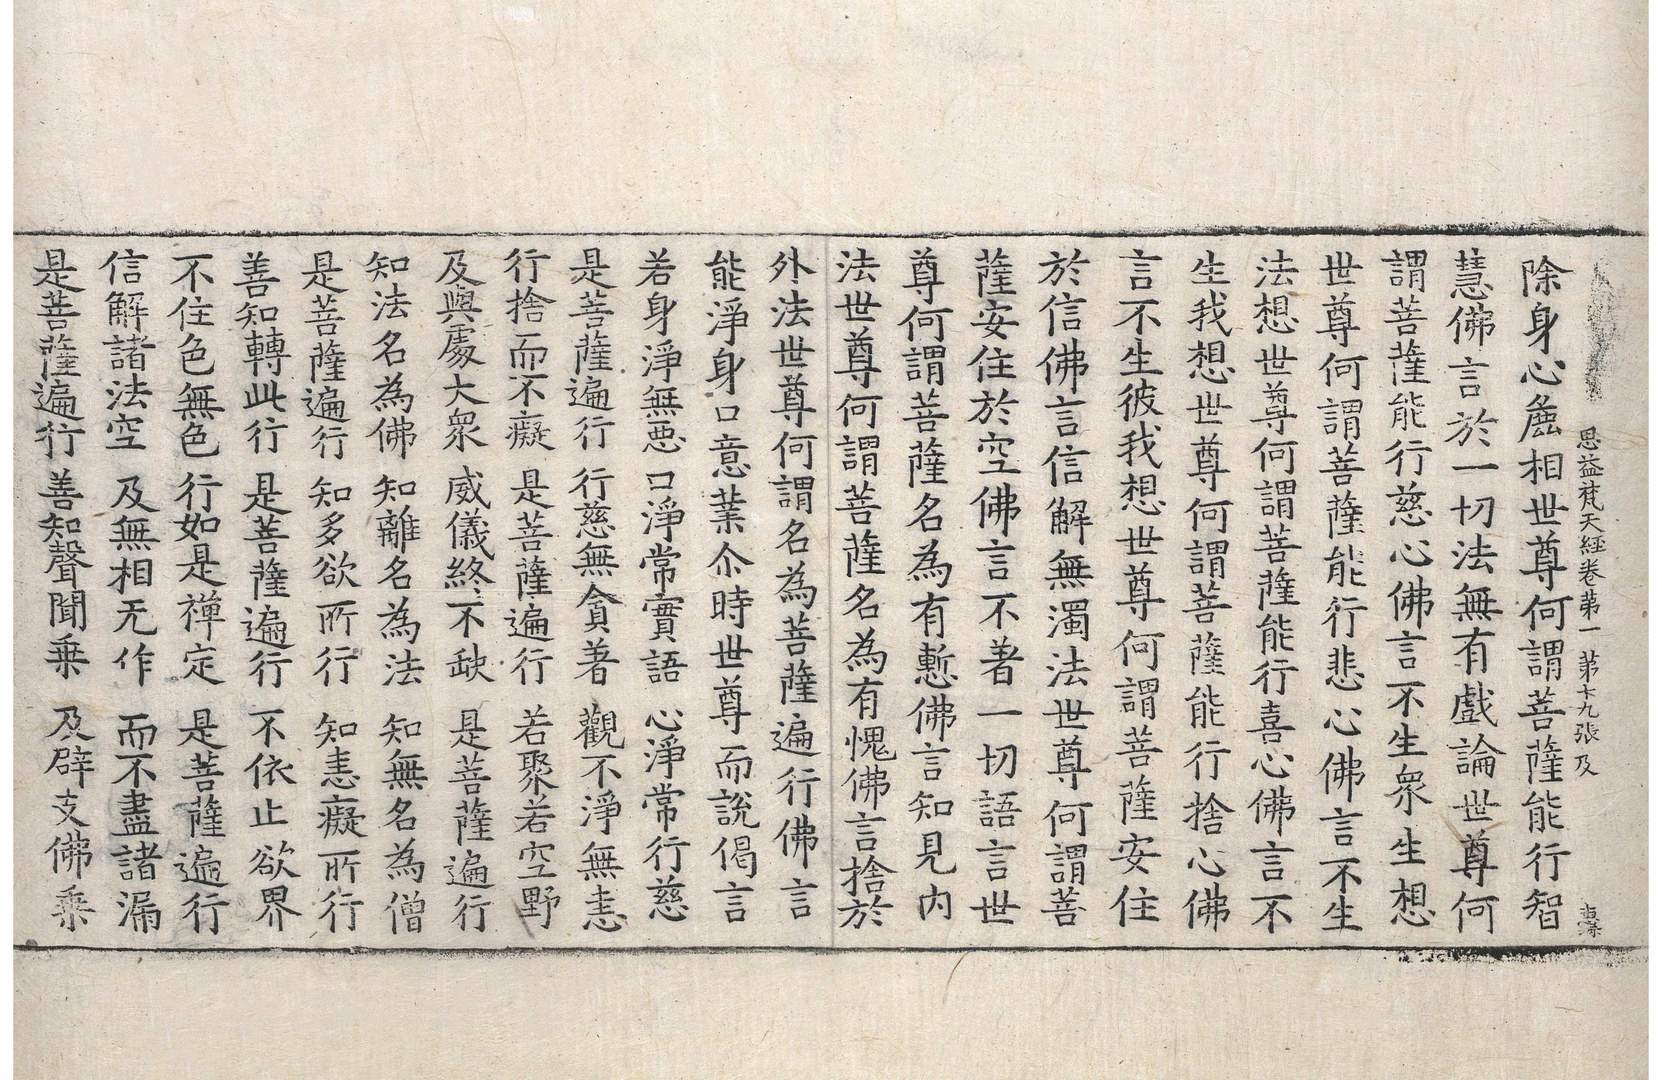 思益梵天經卷第一 第十九張 及
除身心麁相世尊何謂菩薩能行智
慧佛言於一切法無有戲論世尊何
謂菩薩能行慈心佛言不生衆生想
世尊何謂菩薩能行悲心佛言不生
法想世尊何謂菩薩能行喜心佛言不
生我想世尊何謂菩薩能行捨心佛
言不生彼我想世尊何謂菩薩安住
於信佛言信解無濁法世尊何謂菩
薩安住於空佛言不著一切語言世
尊何謂菩薩名為有慙佛言知見內
法世尊何謂菩薩名為有愧佛言捨於
外法世尊何謂名為菩薩遍行佛言
能淨身口意業尒時世尊而說偈言
若身淨無惡 口淨常實語 心淨常行慈
是菩薩遍行 行慈無貪著 觀不淨無恚
行捨而不癡 是菩薩遍行 若聚若空野
及與處大衆 威儀終不缺 是菩薩遍行
知法名為佛 知離名為法 知無名為僧
是菩薩遍行 知多欲所行 知恚癡所行
善知轉此行 是菩薩遍行 不依止欲界
不住色無色 行如是禪定 是菩薩遍行
信解諸法空 及無相无作 而不盡諸漏
是菩薩遍行 善知聲聞乘 及辟支佛乘